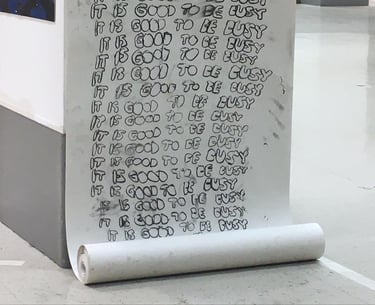 IT IS GOOD TO BE BUSY
IT IS GOOD TO BE BUSY
IT IS GOOD TO BE BUSY
IT IS GOOD TO BE BUSY
IT IS GOOD TO BE BUSY
IT IS GOOD TO BE BUSY
IT IS GOOD TO BE BUSY
IT IS GOOD TO BE BUSY
IT IS GOOD TO BE BUSY
IT IS GOOD TO BE BUSY
IT IS GOOD TO BE BUSY
IT IS GOOD TO BE BUSY
IT IS GOOD TO BE BUSY
IT IS GOOD TO BE BUSY
IT IS GOOD TO BE BUSY
IT IS GOOD TO BE BUSY